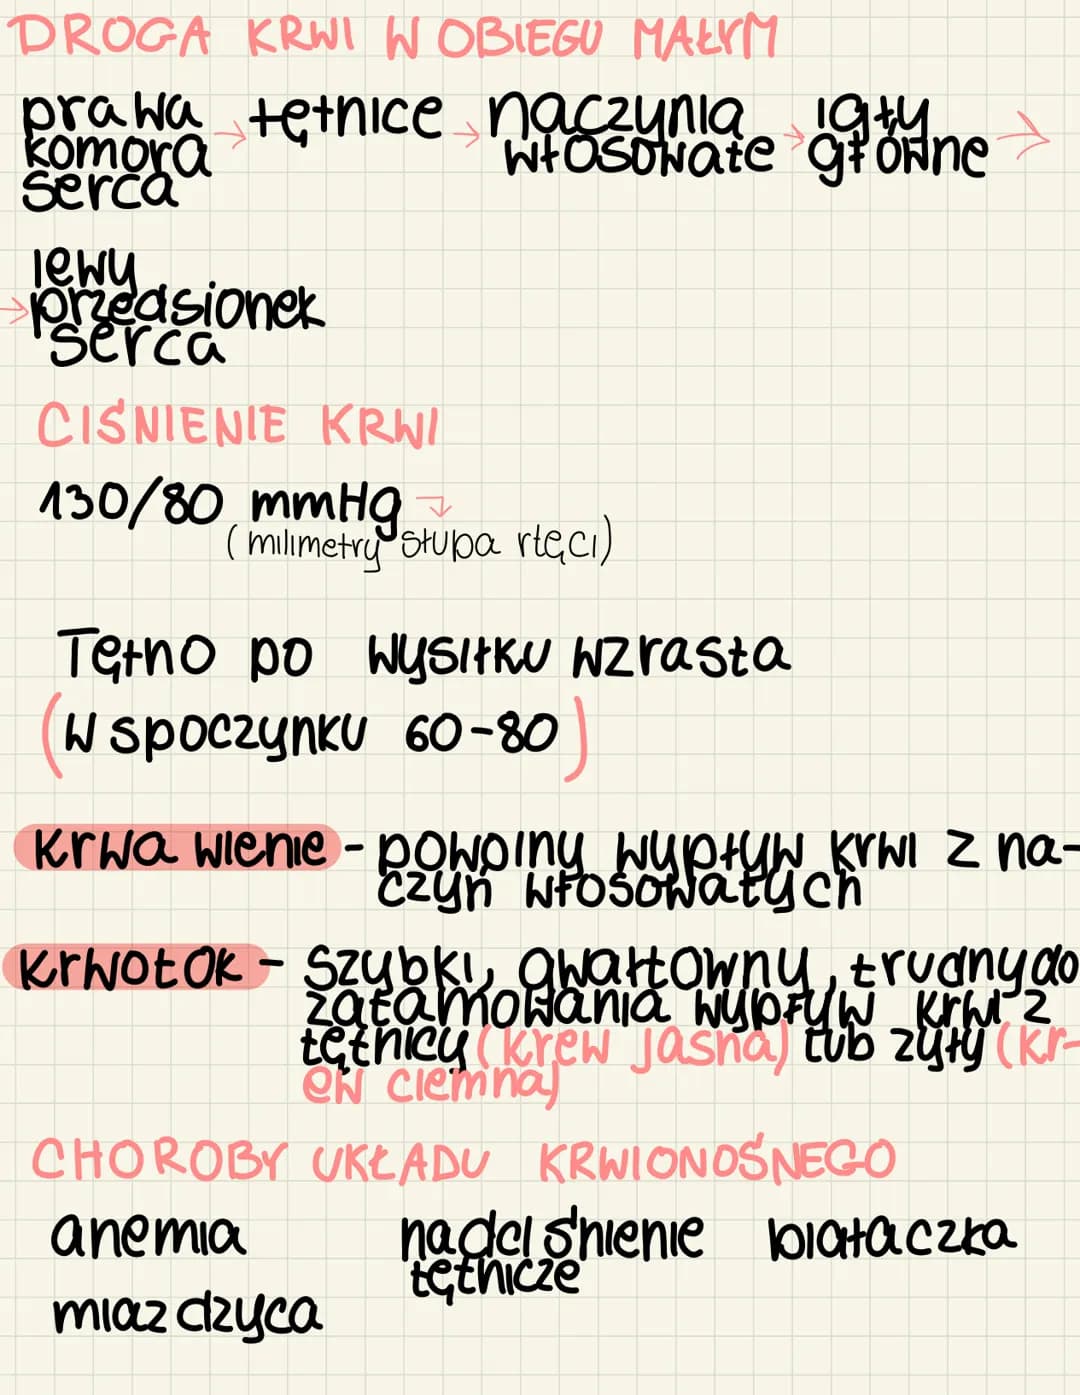 DROGA KRWI W OBIEGU MAŁYM
prawa komora serca → tętnice → naczynia włosowate → igły główne →
→ lewy przedsionek serca
CIŚNIENIE KRWI
130/80 mmHg
(milimetry słupa rtęci)
Tętno po wysiłku wzrasta
(w spoczynku 60-80)
krwawienie - powolny wypływ krwi z na-
czyń włosowatych
krwotok - szybki, gwałtowny, trudny do
zatamowania wypływ krwi z
tętnicy (krew jasna) lub żyły (kr-
ew ciemna)
CHOROBY UKŁADU KRWIONOŚNEGO
anemia nadciśnienie tętnicze białaczka
miazdzyca